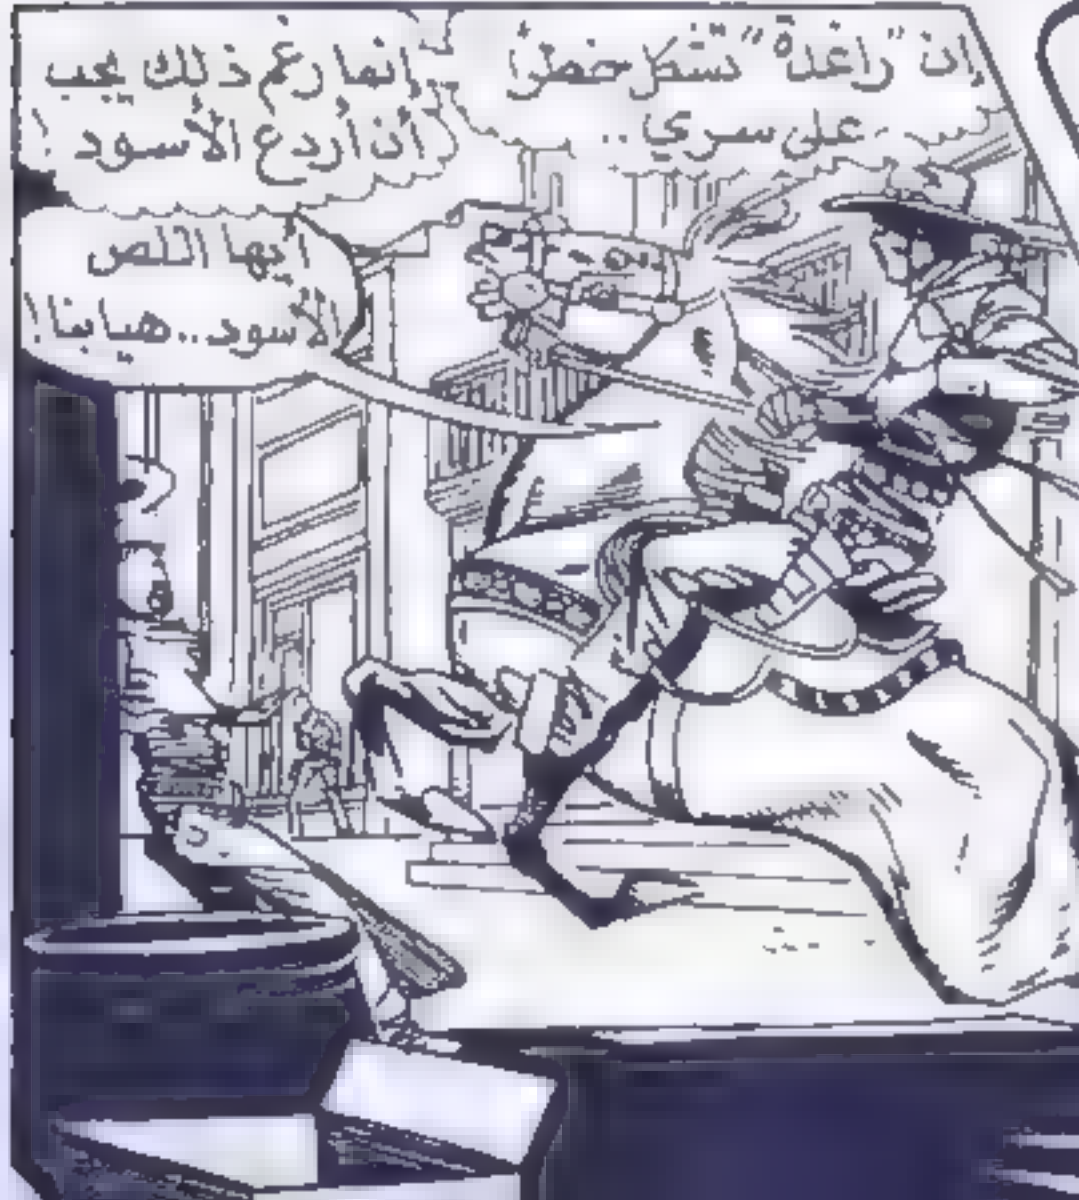 إن "راغدة" تشكل خطرًا
على سري ..
إنما رغم ذلك يجب
أن أردع الأسود !
أيها اللص
الأسود.. هيا بنا !